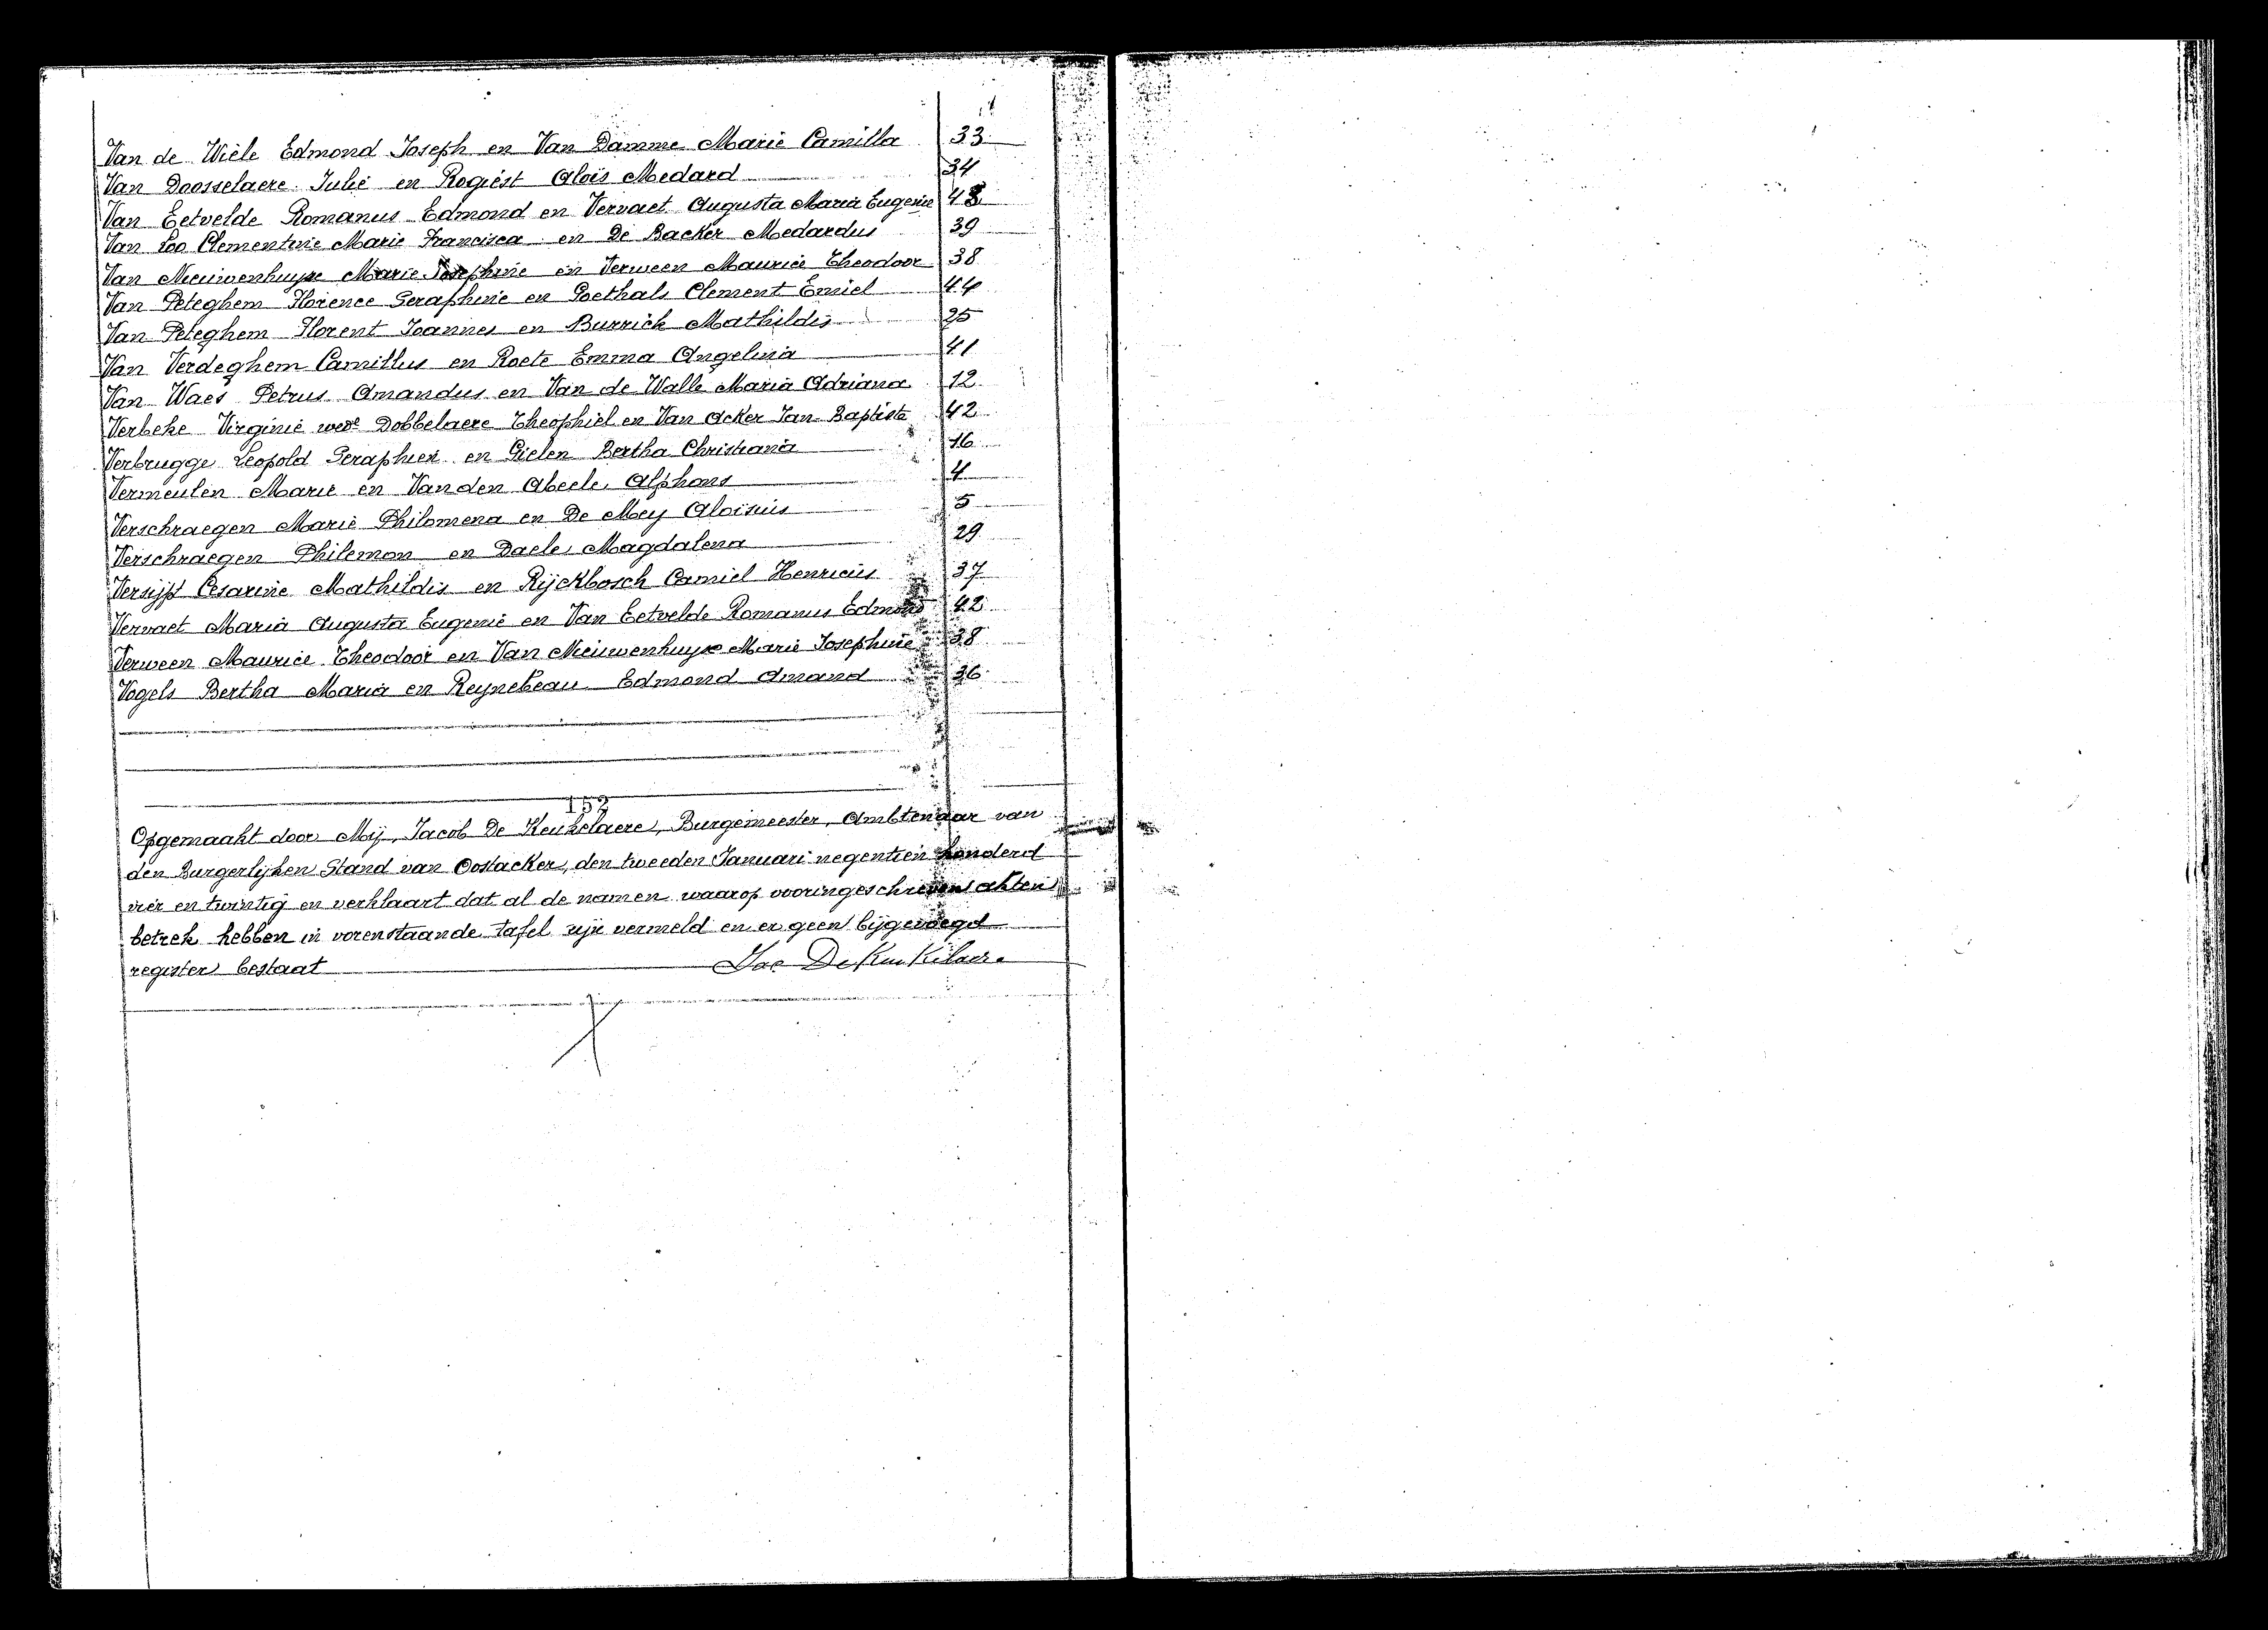 Van de Wiele Edmond Joseph en Van Damme Marie Camilla 33
Van Doosselaere Julie en Rogiést Alois Medard 34
Van Eetvelde Romanus Edmond en Vervaet Augusta Maria Eugenie 43
Van Loo Clementine Marie Francisca en De Backer Medardus 39
Van Nieuwenhuyse Marie Josephine en Verween Maurice Theodoor 38
Van Peteghem Florence Seraphine en Goethals Clement Emiel 44
Van Peteghem Florent Joannes en Burrick Mathildis 25
Van Verdeghem Camillus en Roete Emma Angelina 41
Van Waes Petrus Amandus en Van de Walle Maria Adriana 12
Verbeke Virginie wede Dobbelaere Theophiel en Van Acker Jan Baptiste 42
Verbrugge Leopold Seraphien en Gielen Bertha Christiana 16
Vermeulen Marie en Van den Abeele Alphons 4
Verschraegen Marie Philomena en De Mey Aloisius 5
Verschraegen Philemon en Daele Magdalena 29
Versijp Cesarine Mathildis en Rijckbosch Camiel Henricus 37
Vervaet Maria Augusta Eugenie en Van Eetvelde Romanus Edmond 42
Verween Maurice Theodoor en Van Nieuwenhuyse Marie Josephine 38
Vogels Bertha Maria en Reynebeau Edmond Amand 36
152
Opgemaakt door Mij, Jacob De Keukelaere, Burgemeester, Ambtenaar van
den Burgerlijken Stand van Oostacker, den tweeden Januari negentien honderd
vier en twintig en verklaart dat al de namen waarop vooringeschreven akten
betrek hebben in vorenstaande tafel zijn vermeld en er geen bijgevoegd
register bestaat Jac De Keukelaere